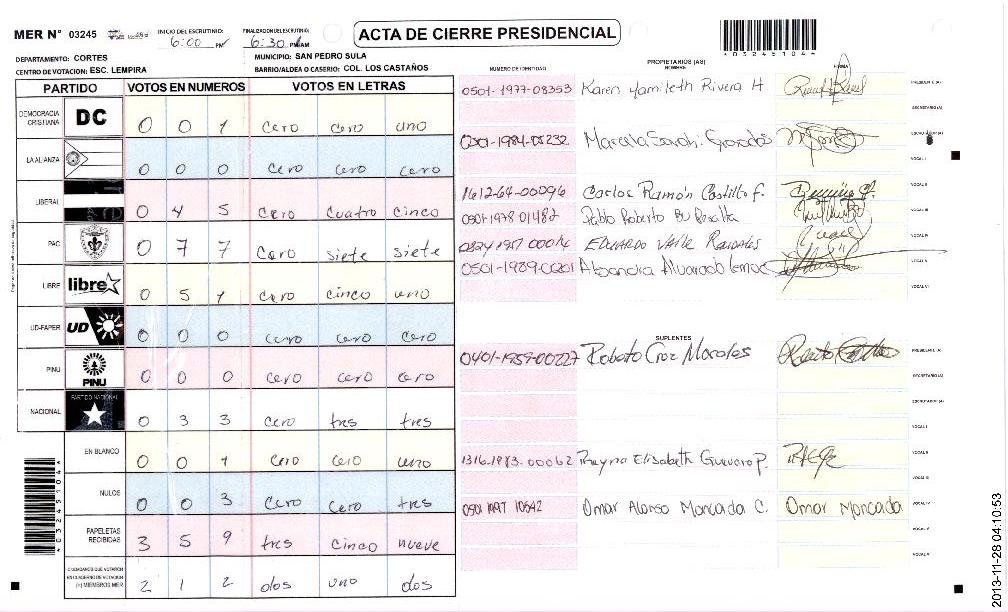 MER N° 03245
INICIO DEL ESCRUTINIO: 6:00 PM
FINALIZACION DEL ESCRUTINIO: 6:30 PM/AM
ACTA DE CIERRE PRESIDENCIAL
DEPARTAMENTO: CORTES
MUNICIPIO: SAN PEDRO SULA
CENTRO DE VOTACION: ESC. LEMPIRA
BARRIO/ALDEA O CASERIO: COL. LOS CASTAÑOS
PARTIDO VOTOS EN NUMEROS VOTOS EN LETRAS
DEMOCRACIA CRISTIANA DC 0 0 1 cero cero uno
LA ALIANZA 0 0 0 cero cero cero
LIBERAL 0 4 5 cero cuatro cinco
PAC 0 7 7 cero siete siete
LIBRE libre 0 5 1 cero cinco uno
UD-FAPER UD 0 0 0 cero cero cero
PINU PINU 0 0 0 cero cero cero
NACIONAL PARTIDO NACIONAL 0 3 3 cero tres tres
EN BLANCO 0 0 1 cero cero uno
NULOS 0 0 3 cero cero tres
PAPELETAS RECIBIDAS 3 5 9 tres cinco nueve
CIUDADANOS QUE VOTARON
EN CUADERNO DE VOTACION
(+) MIEMBROS MER 2 1 2 dos uno dos
*03245104*
*03245104*
NUMERO DE IDENTIDAD PROPIETARIOS (AS) NOMBRE FIRMA
0501-1977-08353 Karen Yamileth Rivera H. PRESIDENTE (A)
SECRETARIO (A)
0501-1984-05232 Marcela Sarahi Granados ESCRUTADOR (A)
VOCAL I
1612-64-00096 Carlos Ramón Castillo F. VOCAL II
0501-1978 01482 Pablo Roberto Bu Peralta VOCAL III
EDUARDO Valle VOCAL IV
0501-1989- Alejandra Alvarado VOCAL V
VOCAL VI
SUPLENTES
0401-1959-00227 Roberto Cruz Morales PRESIDENTE (A)
SECRETARIO (A)
ESCRUTADOR (A)
VOCAL I
1316-1983-00062 Reyna Elisabeth Guevara P. VOCAL II
Omar Alonso Moncada C. Omar Moncada
VOCAL V
2013-11-28 04:10:53